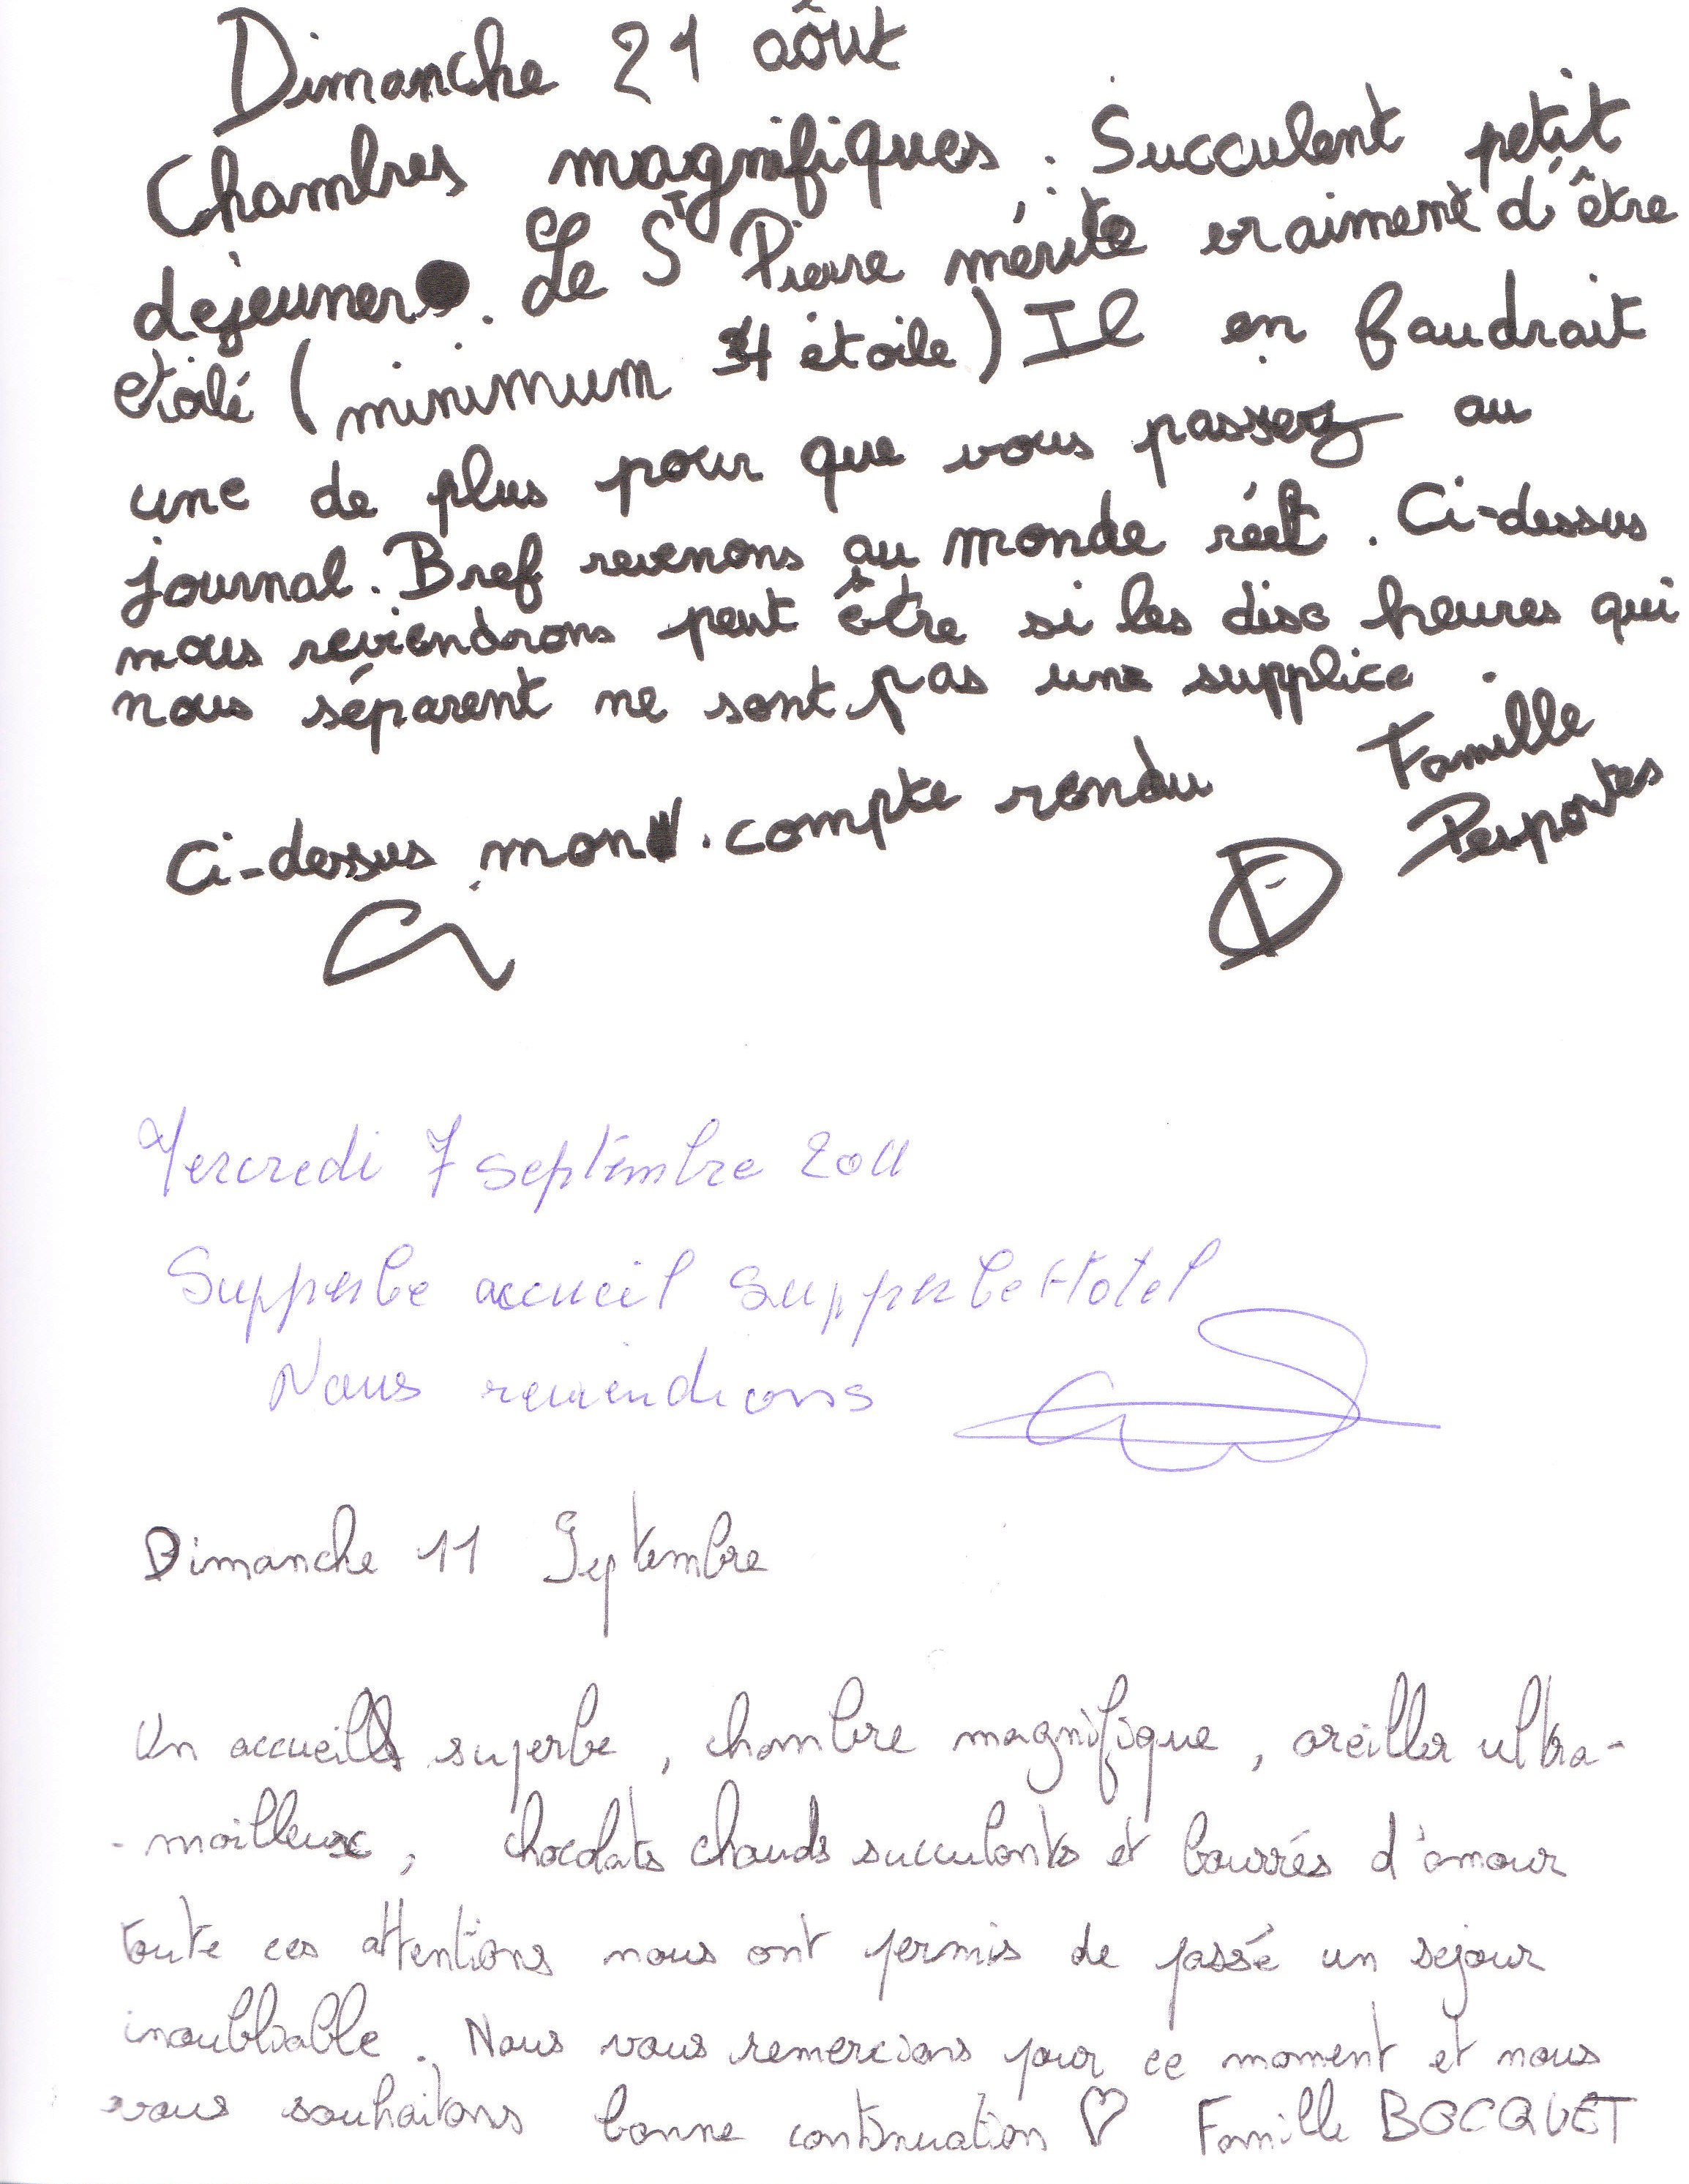 Dimanche 21 aôut
Chambres magnifiques. Succulent petit
dejeuner. Le St Pierre mérite vraiment d'être
etoilé (minimum 4 étoile) Il en faudrait
une de plus pour que vous passez au
journal. Bref revenons au monde réel. Ci-dessus
nous reviendrons peut être si les dix heures qui
nous séparent ne sont pas une supplice.
Famille
Desportes
Ci-dessus mon compte rendu
Mercredi 7 septembre 2011
Supperbe accueil supperbe Hotel
Nous reviendrons
Dimanche 11 Septembre
Un accueil superbe, chambre magnifique, oreiller ultra-
-moilleux, chocolats chauds succulents et bourrés d'amour
toute ces attentions nous ont permis de passé un sejour
inoubliable. Nous vous remercions pour ce moment et nous
vous souhaitons bonne continuation ♡ Famille BOCQUET